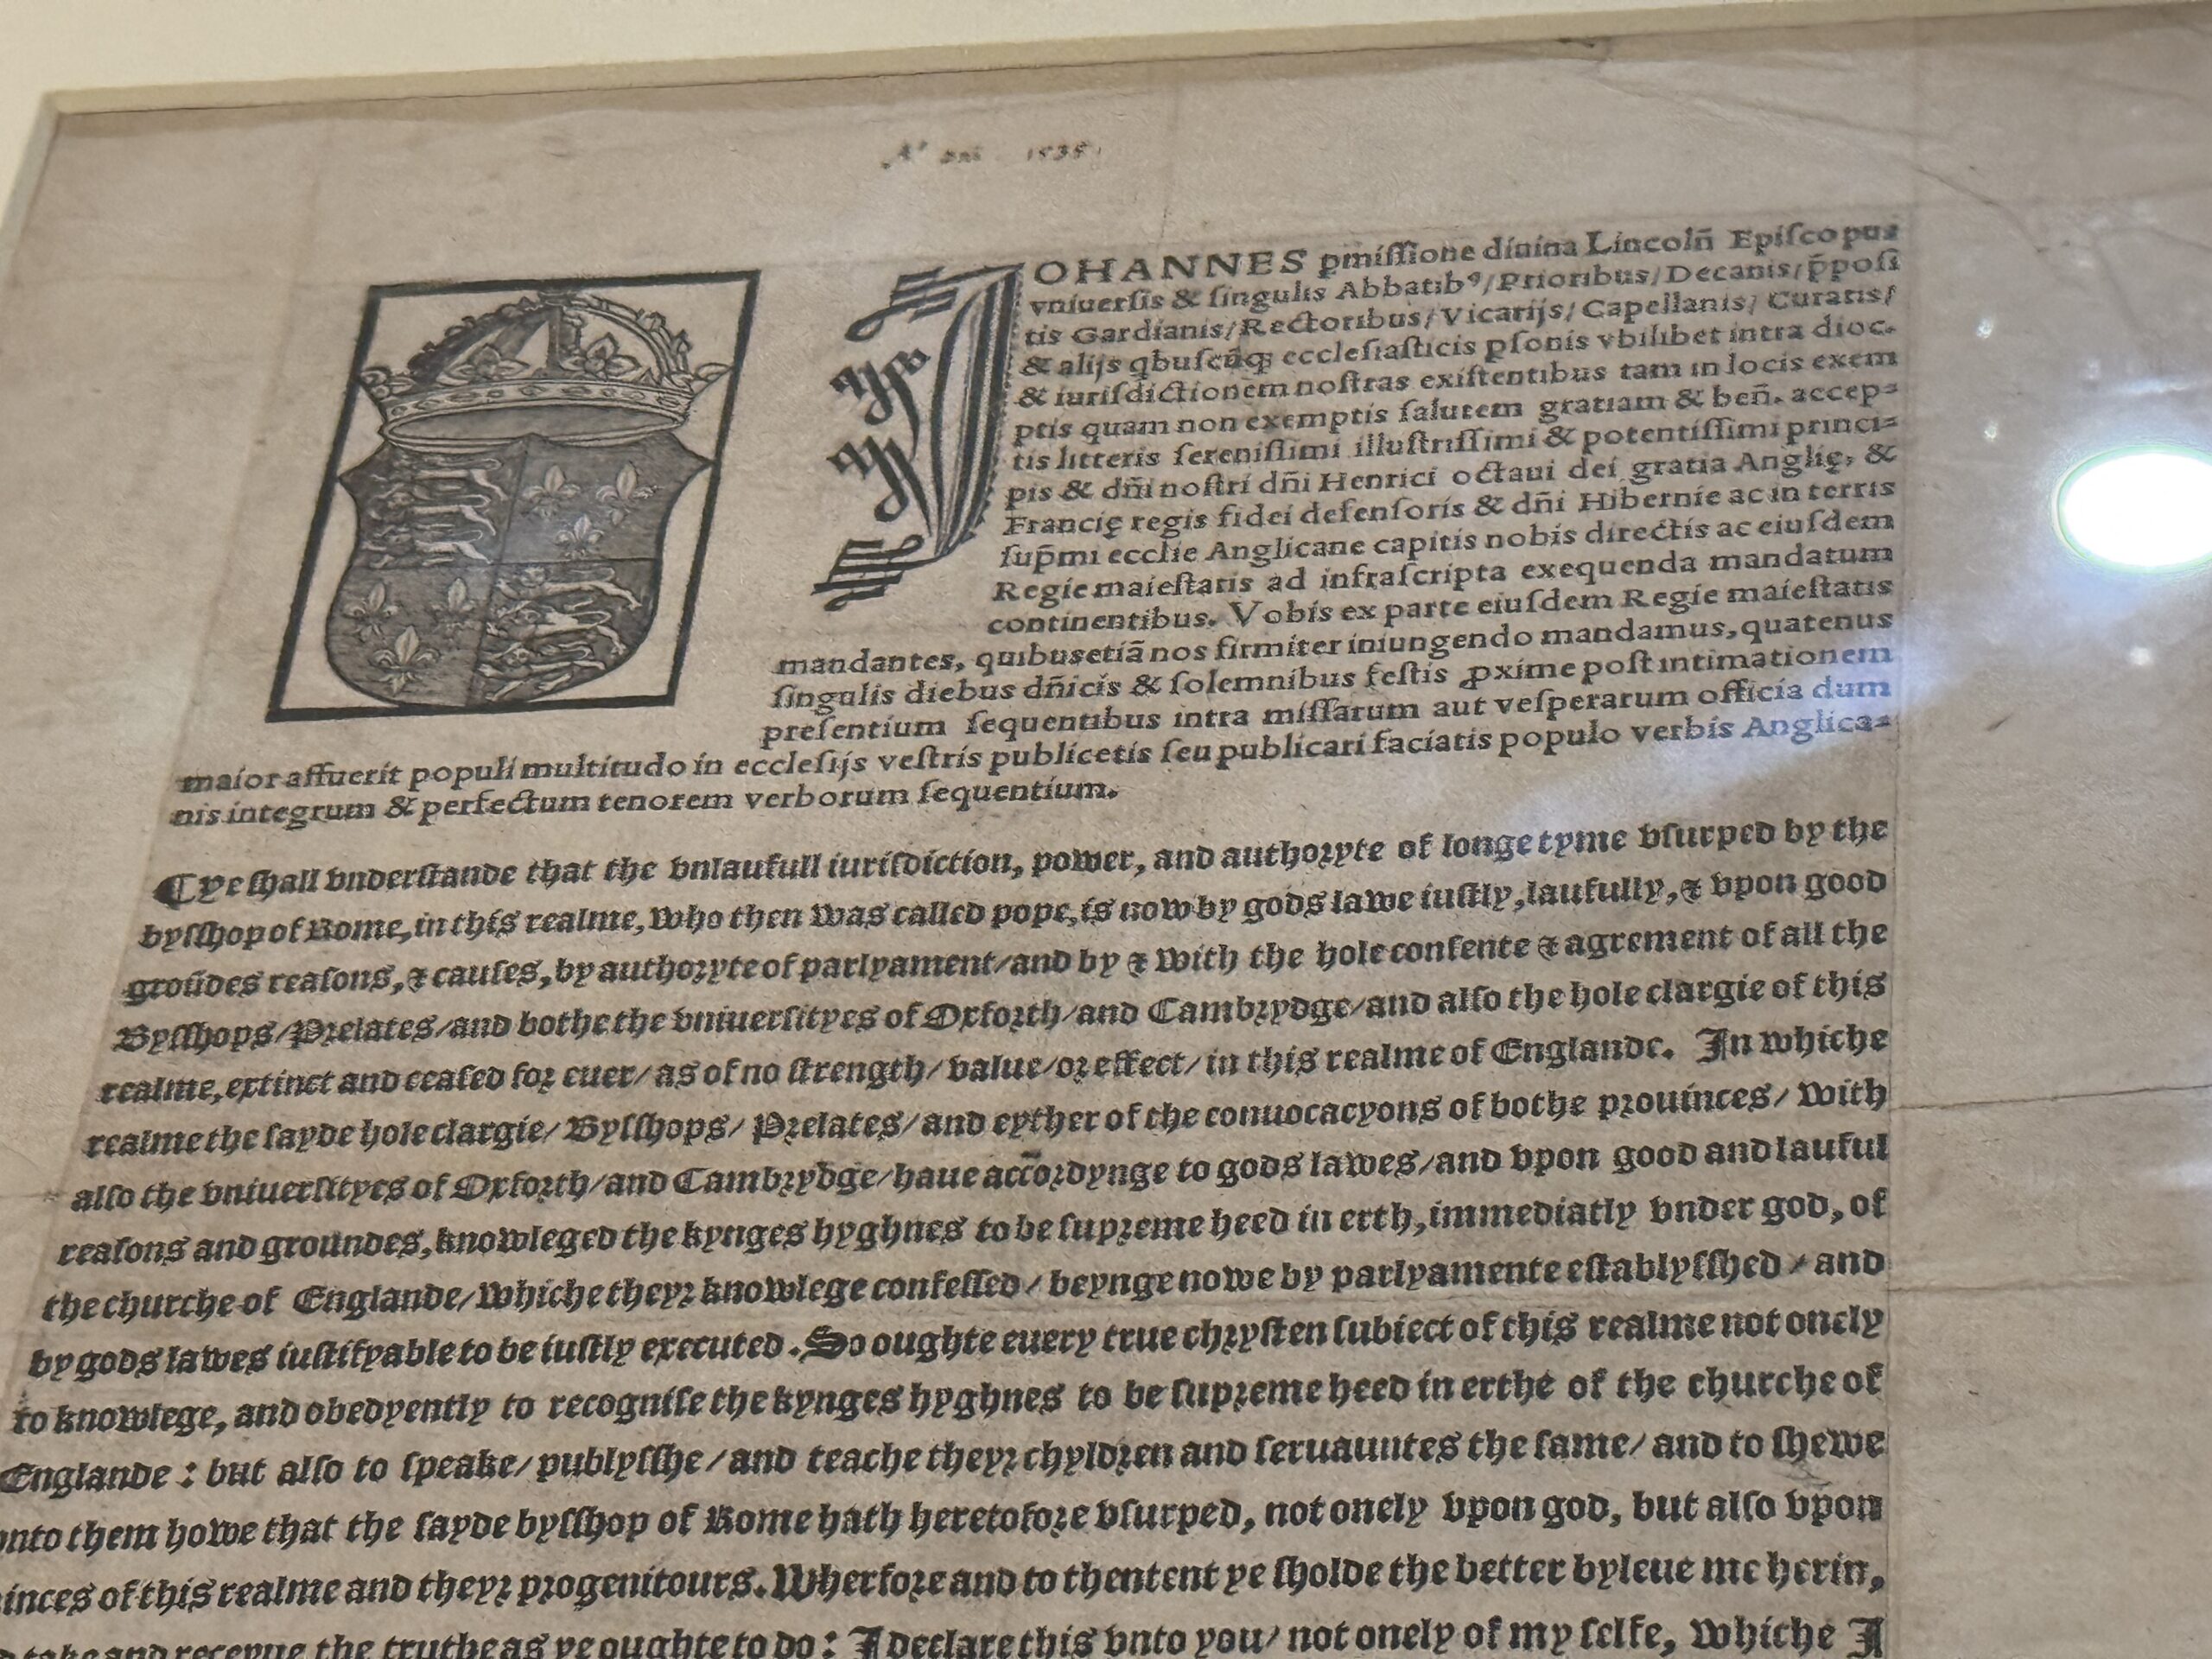 Aº dni 1535
JOHANNES pmiſſione diuina Lincolñ Epiſcopus
vniuerſis & ſingulis Abbatibꝰ/Prioribus/Decanis/p̄poſi
tis Gardianis/Rectoribus/Vicarijs/Capellanis/Curatis/
& alijs qbuſcūqꝫ eccleſiaſticis ꝑſonis vbilibet intra dioc.
& iuriſdictionem noſtras exiſtentibus tam in locis exem
ptis quam non exemptis ſalutem gratiam & beñ. accep⸗
tis litteris ſereniſſimi illuſtriſſimi & potentiſſimi princi⸗
pis & dñi noſtri dñi Henrici octaui dei gratia Anglię, &
Francię regis fidei defenſoris & dñi Hibernie ac in terris
ſup̄mi ecclie Anglicane capitis nobis directis ac eiuſdem
Regie maieſtatis ad infraſcripta exequenda mandatum
continentibus. Vobis ex parte eiuſdem Regie maieſtatis
mandantes, quibus etiā nos firmiter iniungendo mandamus, quatenus
ſingulis diebus dñicis & ſolemnibus feſtis ꝓxime poſt intimationem
preſentium ſequentibus intra miſſarum aut veſperarum officia dum
maior affuerit populi multitudo in eccleſijs veſtris publicetis ſeu publicari faciatis populo verbis Anglica⸗
nis integrum & perfectum tenorem verborum ſequentium.
¶ ye ſhall vnderſtande that the vnlaufull iuriſdiction, power, and authoryte of longe tyme vſurped by the
byſſhop of Rome, in this realme, who then was called pope, is now by gods lawe iuſtly, laufully, & vpon good
groūdes reaſons, & cauſes, by authoryte of parlyament/and by & with the hole conſente & agrement of all the
Byſſhops/Prelates/and bothe the vniuerſityes of Oxforth/and Cambrydge/and alſo the hole clargie of this
realme, extinct and ceaſed for euer/as of no ſtrength/value/or effect/in this realme of Englande. In whiche
realme the ſayde hole clargie/Byſſhops/Prelates/and eyther of the conuocacyons of bothe prouinces/with
alſo the vniuerſityes of Oxforth/and Cambrydge/haue accordynge to gods lawes/and vpon good and lauful
reaſons and groundes, knowleged the kynges hyghnes to be ſupreme heed in erth, immediatly vnder god, of
the churche of Englande/whiche theyr knowlege confeſſed/beynge nowe by parlyamente eſtablyſſhed/and
by gods lawes iuſtifyable to be iuſtly executed. So oughte euery true chryſten ſubiect of this realme not onely
to knowlege, and obedyently to recogniſe the kynges hyghnes to be ſupreme heed in erthe of the churche of
Englande: but alſo to ſpeake/publyſſhe/and teache theyr chyldren and ſeruauntes the ſame/and to ſhewe
vnto them howe that the ſayde byſſhop of Rome hath heretofore vſurped, not onely vpon god, but alſo vpon
inces of this realme and theyr progenitours. Wherfore and to thentent ye ſholde the better byleue me herin,
take and receyue the truthe as ye oughte to do: I declare this vnto you/not onely of my ſelfe, whiche I